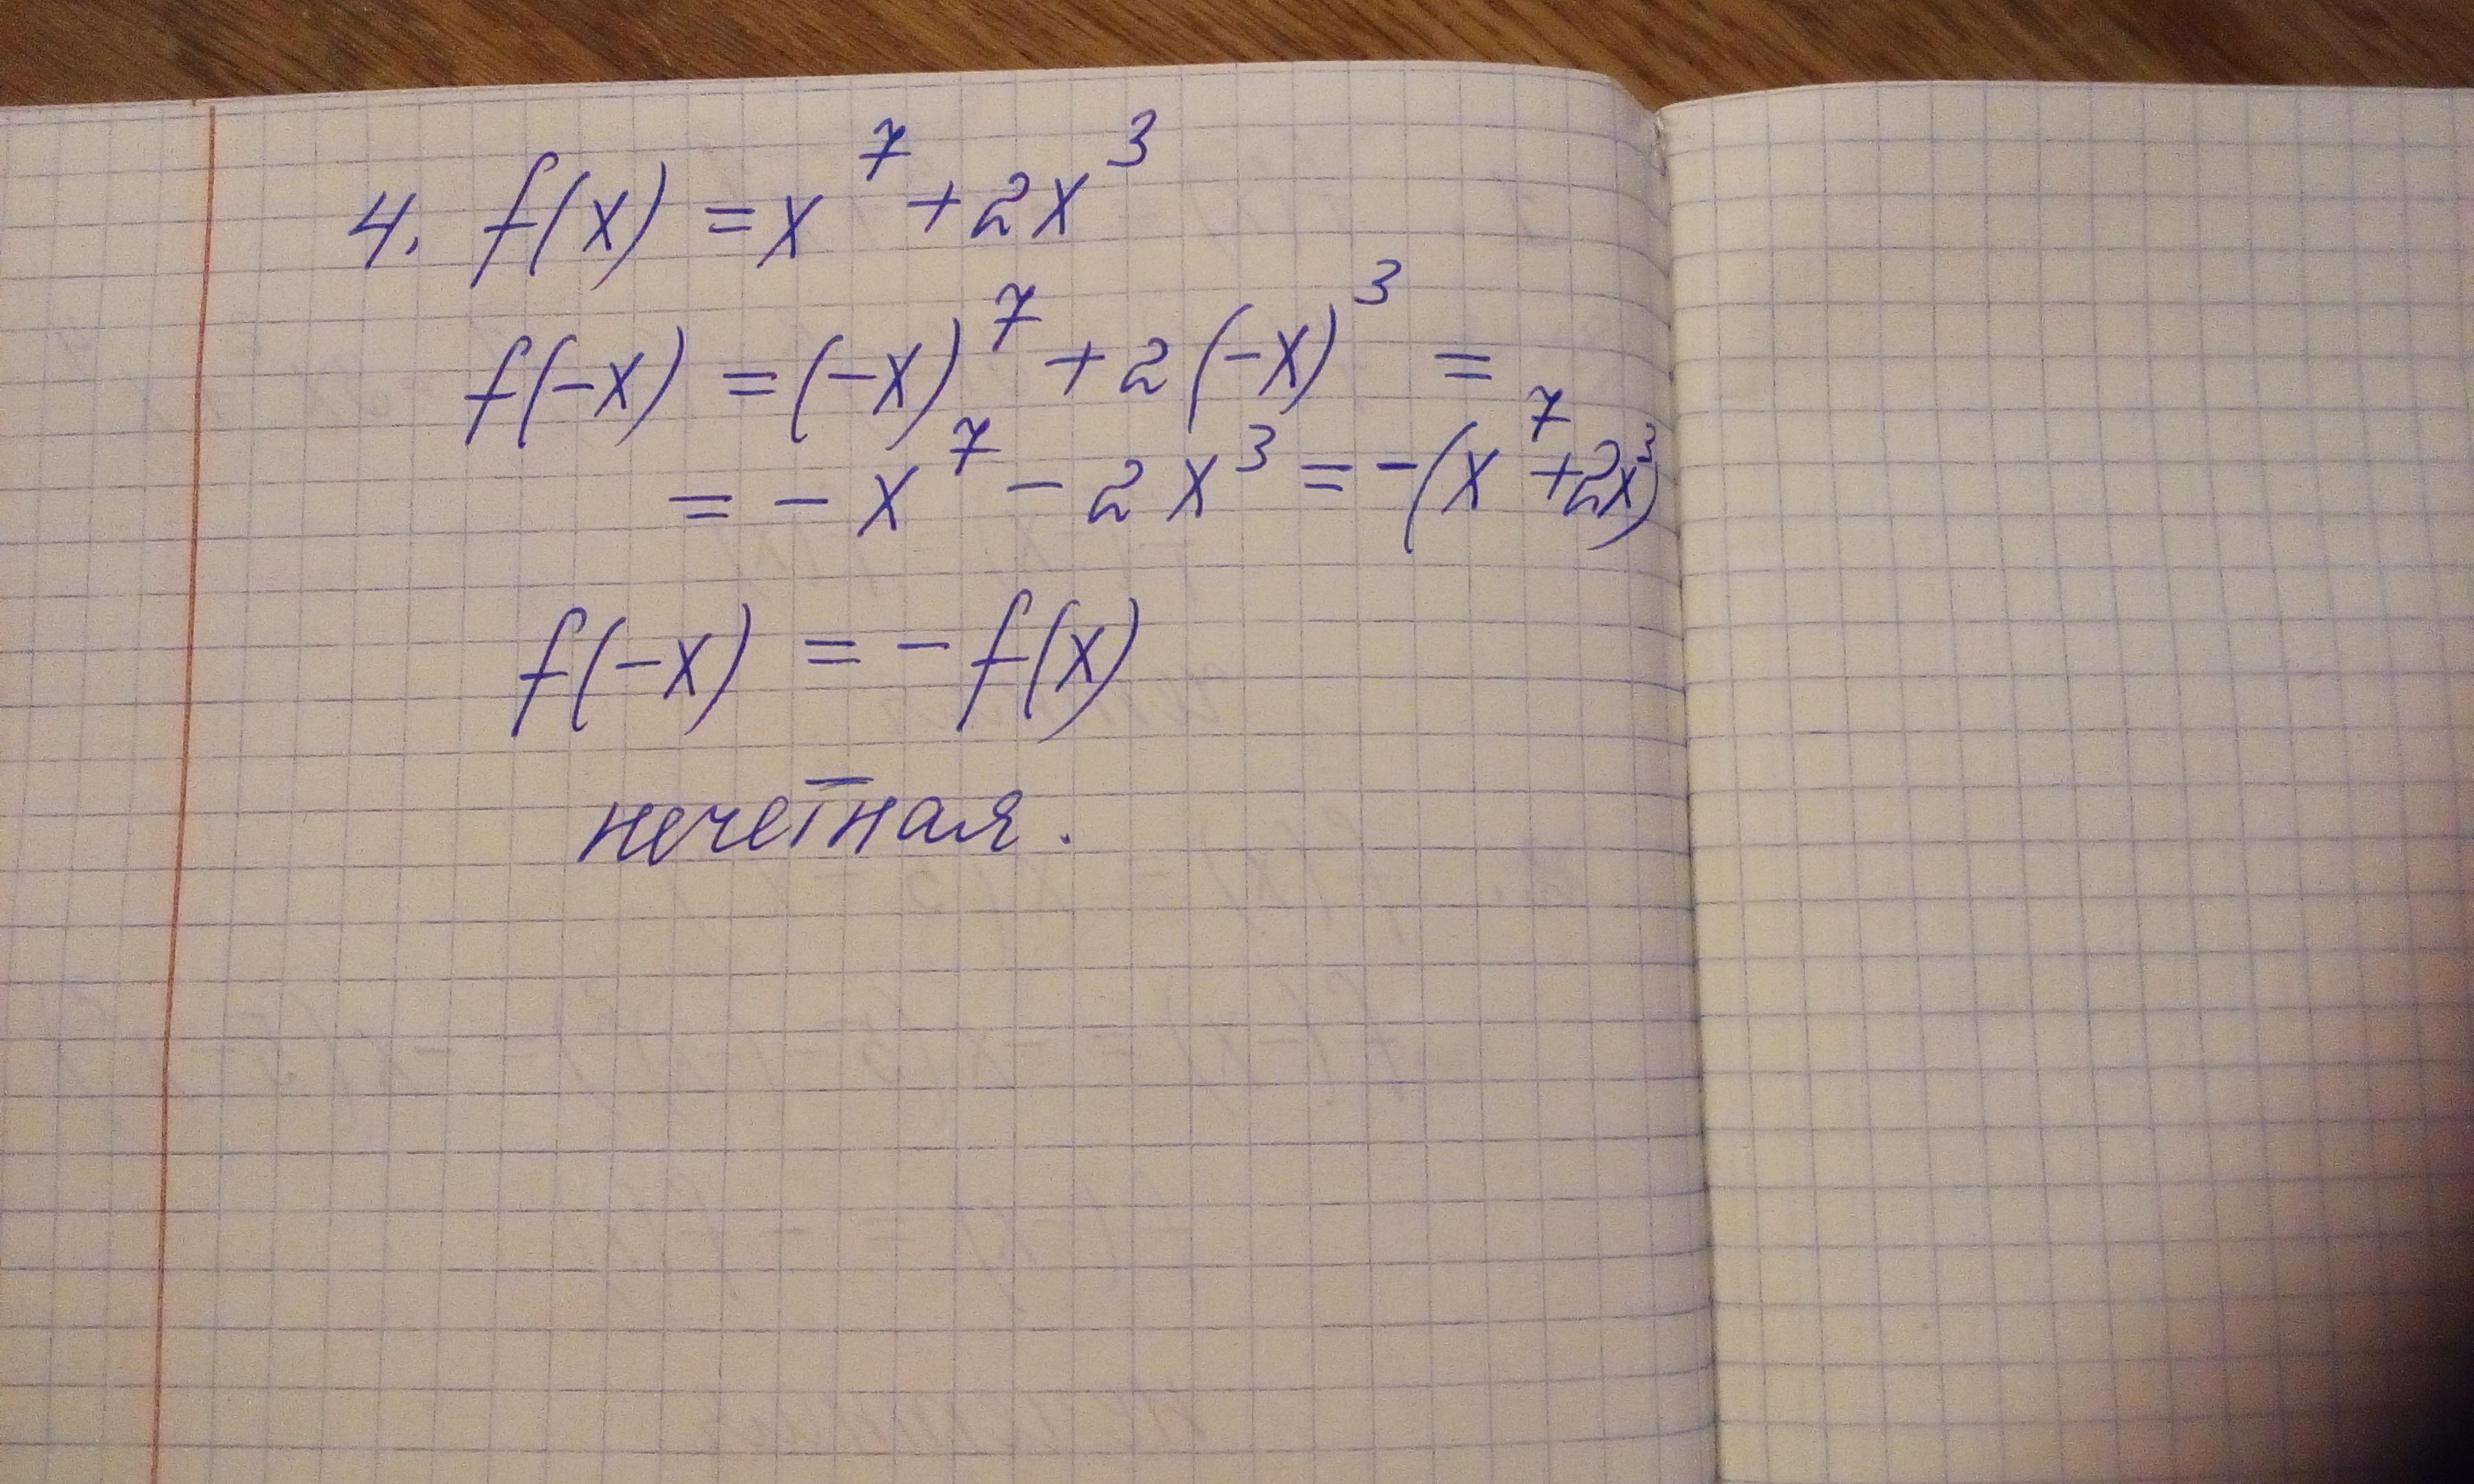 4. f(x) = x⁷ + 2x³
f(-x) = (-x)⁷ + 2(-x)³ =
= - x⁷ - 2x³ = -(x⁷ + 2x³)
f(-x) = - f(x)
нечетная.